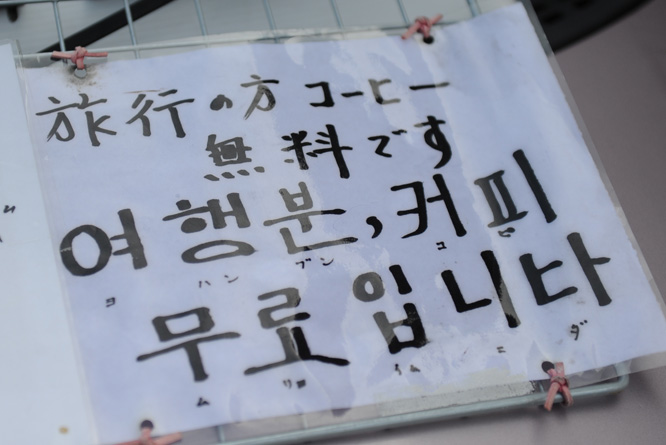 旅行の方コーヒー
無料です
여행분, 커피
ヨ ハン ブン コ ピ
무료입니다
ム リョ イム ニ ダ